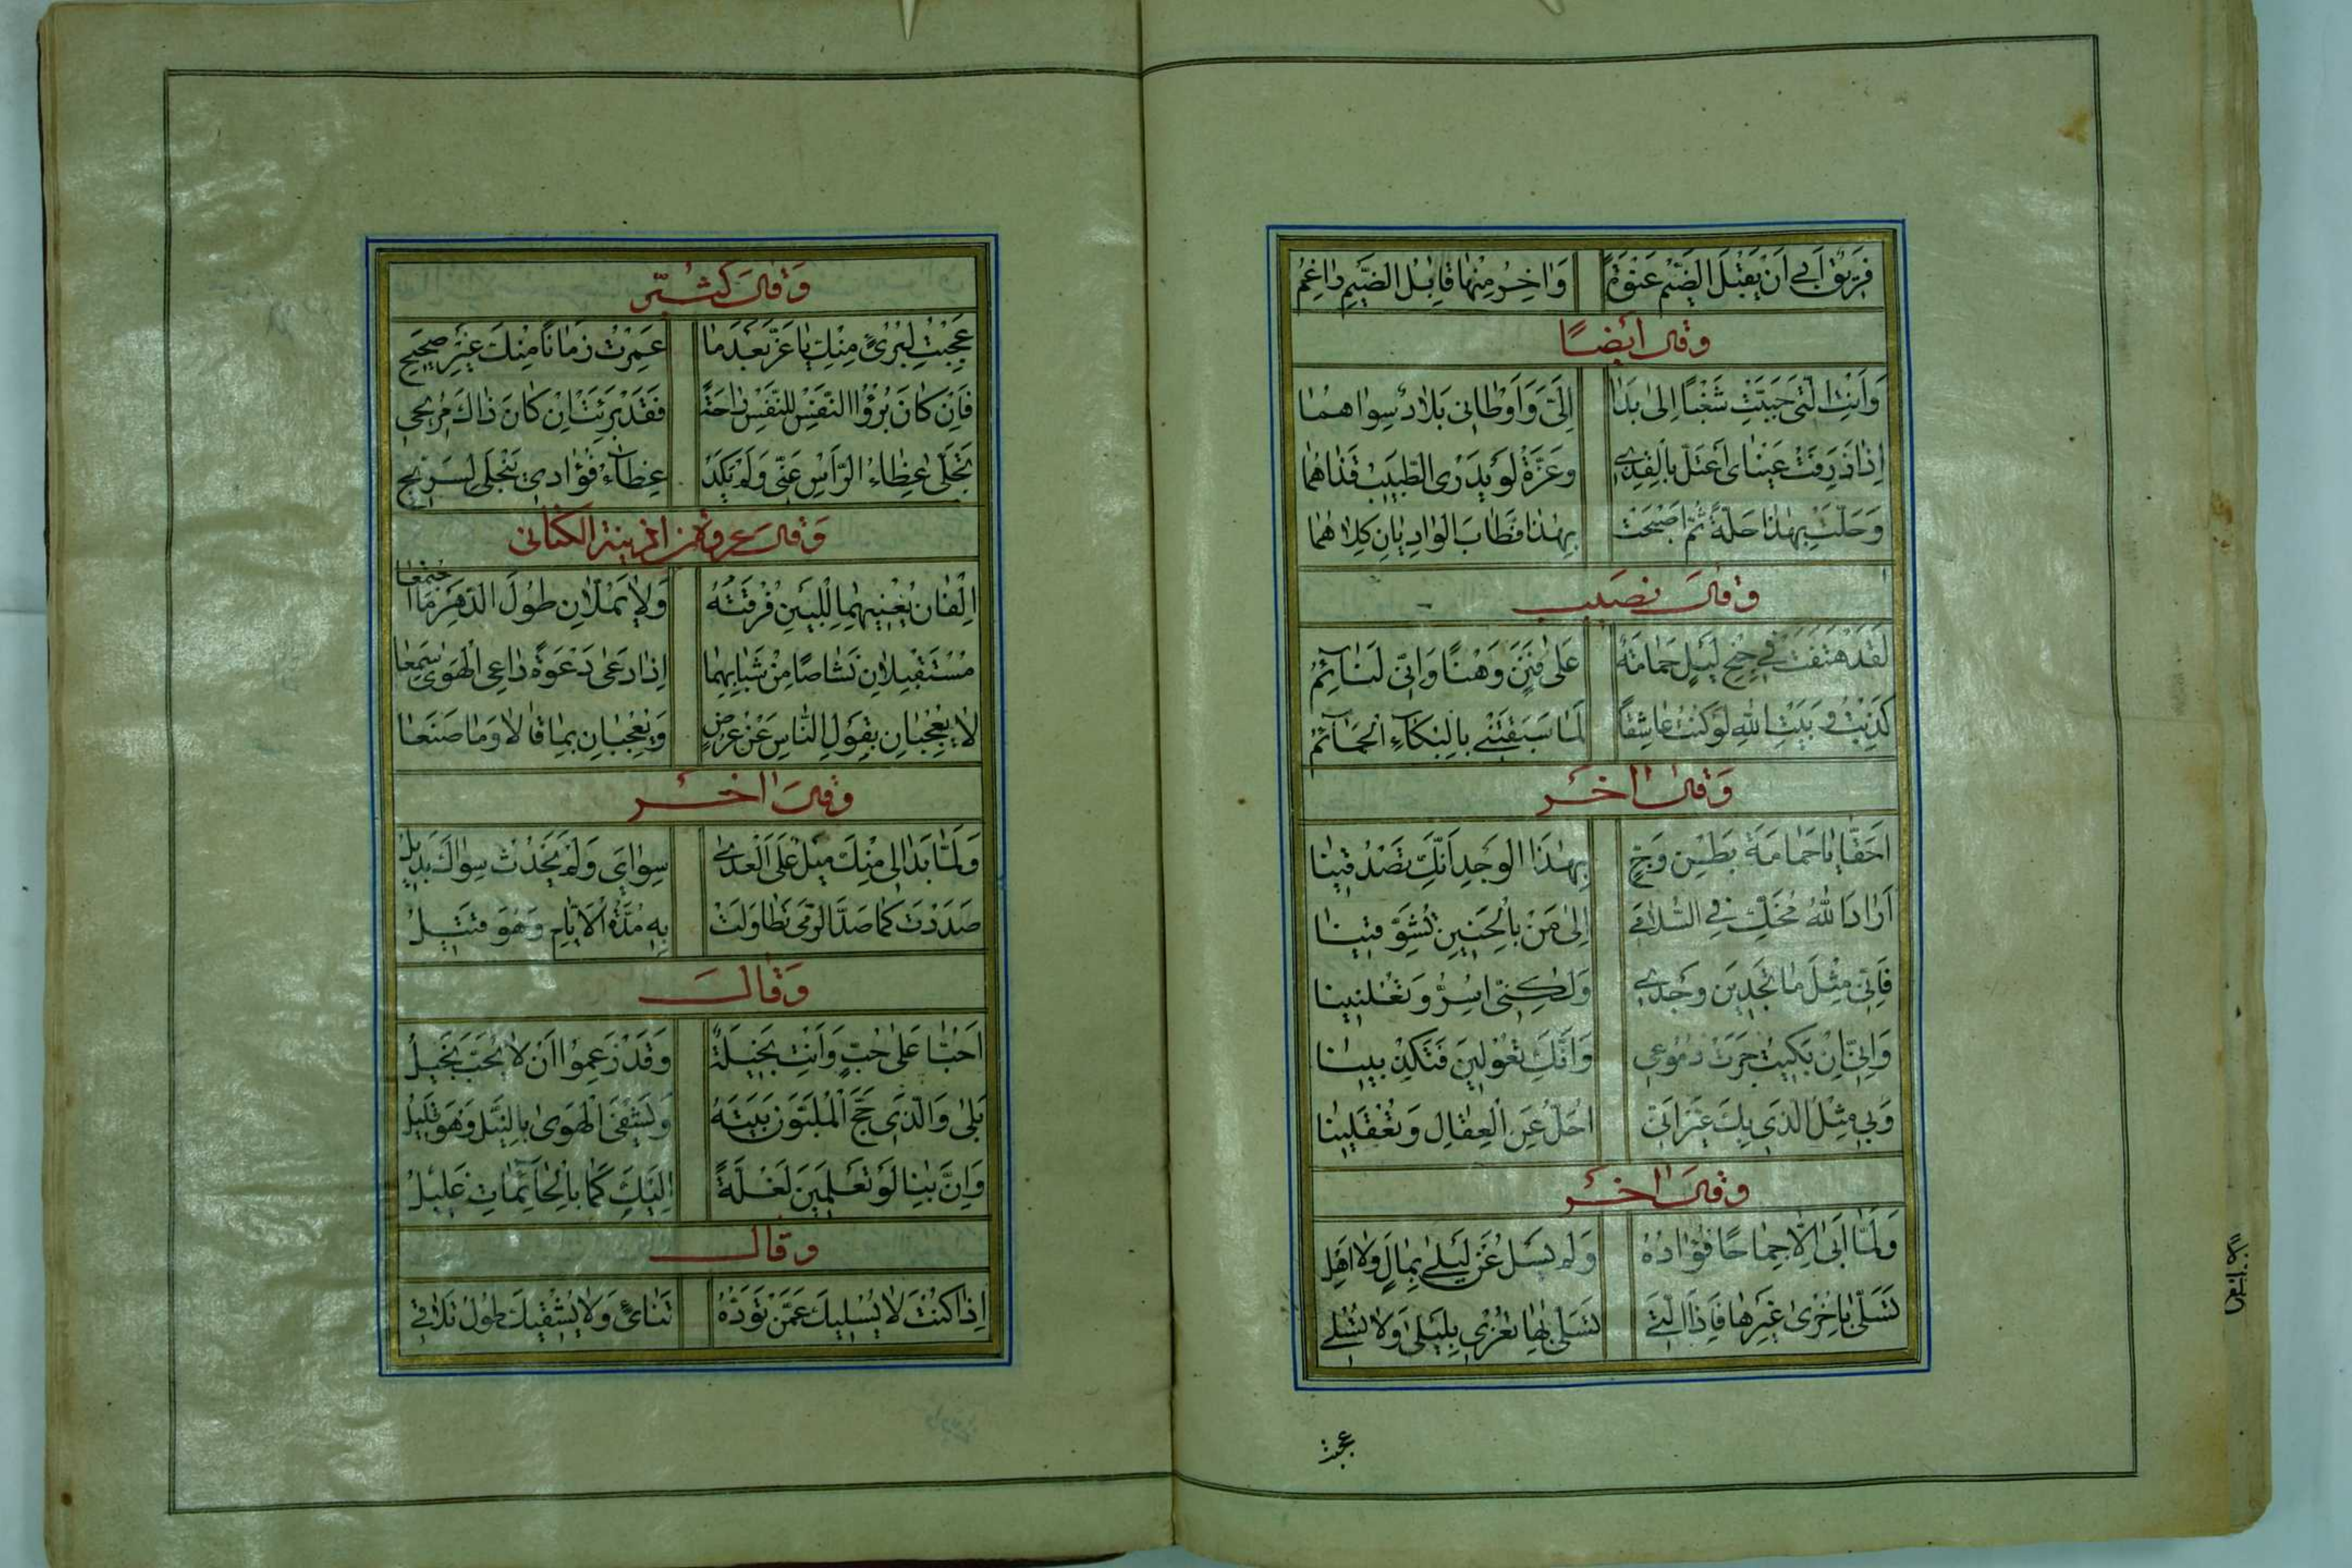 فَرِيْقٌ اَبٰى اَنْ يَقْبَلَ الضَّيْمَ عَنْوَةً وَاٰخِرُ مِنْهَا قَابِلُ الضَّيْمِ رَاغِمُ
وقال أيضًا
وَاَنْتِ الَّتِى حَبَّبْتِ شَغْبًا اِلٰى بَدَا اِلَىَّ وَاَوْطَانِى بِلَادٌ سِوَاهُمَا
اِذَا ذَرَفَتْ عَيْنَاىَ اَعْتَلُّ بِالْقَذٰى وَعَزَّةُ لَوْ يَدْرِى الطَّبِيْبُ قَذَاهُمَا
وَحَلَّتْ بِهٰذَا حَلَّةً ثُمَّ اَصْبَحَتْ بِهٰذَا فَطَابَ الْوَادِيَانِ كِلَاهُمَا
وَقَالَ نصَيب
لَقَدْ هَتَفَتْ فِى جُنْحِ لَيْلٍ حَمَامَةٌ عَلٰى فَنَنٍ وَهْنًا وَاِنِّى لَنَآئِمُ
كَذَبْتُ وَبَيْتِ اللّٰهِ لَوْ كُنْتُ عَاشِقًا لَمَا سَبَقَتْنِى بِالْبُكَآءِ الْحَمَآئِمُ
وَقَالَ اٰخَر
اَحَقًّا يَا حَمَامَةَ بَطْنِ وَجٍّ بِهٰذَا الْوَجْدِ اَنَّكِ تَصْدُقِيْنَا
اَرَادَ اللّٰهُ مُخَّكِ فِى السُّلَامٰى اِلٰى مَنْ بِالْحَنِيْنِ تُشَوِّقِيْنَا
فَاِنِّى مِثْلَ مَا تَجِدِيْنَ وَجْدِى وَلٰكِنِّى اُسِرُّ وَتُعْلِنِيْنَا
وَاِنِّى اِنْ بَكَيْتُ جَرَتْ دُمُوْعِى وَاَنَّكِ تَعُوْلِيْنَ فَتَكْذِبِيْنَا
وَبِى مِثْلُ الَّذِى بِكِ غَيْرَ اَنِّى اُحَلُّ عَنِ الْعِقَالِ وَتُعْقَلِيْنَا
وَقَالَ اٰخَر
وَلَمَّا اَبٰى اِلَّا جِمَاحًا فُؤَادُهُ وَلَمْ يَسْلُ عَنْ لَيْلٰى بِمَالٍ وَلَا اَهْلِ
تَسَلّٰى بِاُخْرٰى غَيْرِهَا فَاِذَا الَّتِى تَسَلّٰى بِهَا تُغْرِى بِلَيْلٰى وَلَا تُسْلِى
عجبت
وَقَالَ كُثَيِّر
عَجِبْتُ لِبُرْئِى مِنْكِ يَا عَزَّ بَعْدَمَا عَمِرْتُ زَمَانًا مِنْكِ غَيْرَ صَحِيْحِ
فَاِنْ كَانَ بُرْؤُا النَّفْسِ لِلنَّفْسِ رَاحَةً فَقَدْ بَرِئَتْ اِنْ كَانَ ذَاكَ مُرِيْحِى
تَجَلّٰى غِطَاءُ الرَّأْسِ عَنِّى وَلَمْ يَكَدْ غِطَاءُ فُؤَادِى يَنْجَلِى لِسَرِيْحِ
وَقَالَ عروة بن اذينة الكنانى
اِلْفَانِ يُعْنِيْهِمَا لِلْبَيْنِ فُرْقَتُهُ وَلَا يَمَلَّانِ طُوْلَ الدَّهْرِ مَا اجْتَمَعَا
مُسْتَقْبِلَانِ نَشَاصًا مِنْ شَبَابِهِمَا اِذَا دَعٰى دَعْوَةً دَاعِى الْهَوٰى سَمِعَا
لَا يُعْجَبَانِ بِقَوْلِ النَّاسِ عَنْ عُرُضٍ وَيُعْجَبَانِ بِمَا قَالَا وَمَا صَنَعَا
وَقَالَ اٰخَر
وَلَمَّا بَدَا لِى مِنْكَ مَيْلٌ عَلَى الْعِدٰى سِوَاىَ وَلَمْ يَحْدُثْ سِوَاكَ بَدِيْلُ
صَدَدْتُ كَمَا صَدَّ الرَّمِىُّ تَطَاوَلَتْ بِهِ مُدَّةُ الْاَيَّامِ وَهُوَ قَتِيْلُ
وَقَالَ
اَحُبًّا عَلٰى حُبٍّ وَاَنْتِ بَخِيْلَةٌ وَقَدْ زَعَمُوْا اَنْ لَا يُحَبَّ بَخِيْلُ
بَلٰى وَالَّذِى حَجَّ الْمُلَبُّوْنَ بَيْتَهُ وَيَشْفَى الْهَوٰى بِالنَّيْلِ وَهُوَ قَلِيْلُ
وَاِنَّ بِنَا لَوْ تَعْلَمِيْنَ لَغُلَّةً اِلَيْكِ كَمَا بِالْحَآئِمَاتِ غَلِيْلُ
وَقَالَ
اِذَا كُنْتَ لَا يُسْلِيْكَ عَمَّنْ تَوَدُّهُ تَنَائِىٌ وَلَا يُشْفِيْكَ طُوْلُ تَلَاقِى